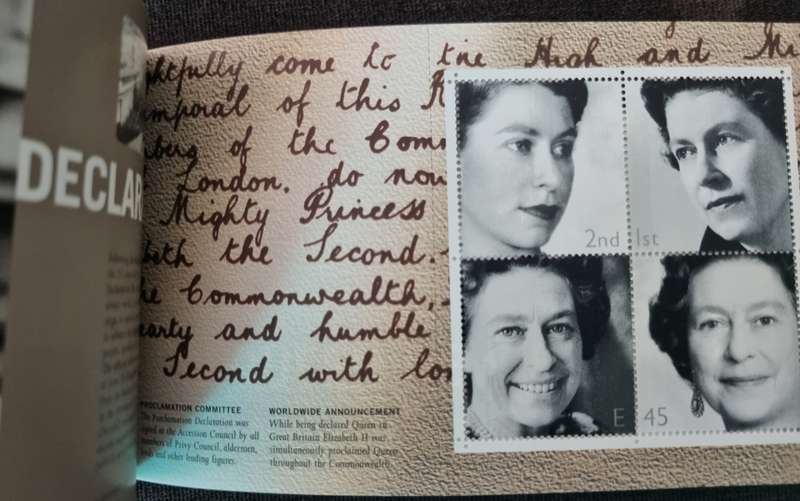 DECLAR
ghtfully come to the High and Mi
mporal of this R
mbers of the Comm
London, do now
Mighty Princess
beth the Second.
he Commonwealth,
earty and humble
Second with lo
2nd
1st
E
45
PROCLAMATION COMMITTEE
The Proclamation Declaration was
signed at the Accession Council by all
members of Privy Council, aldermen,
lords and other leading figures.
WORLDWIDE ANNOUNCEMENT
While being declared Queen in
Great Britain Elizabeth II was
simultaneously proclaimed Queen
throughout the Commonwealth.